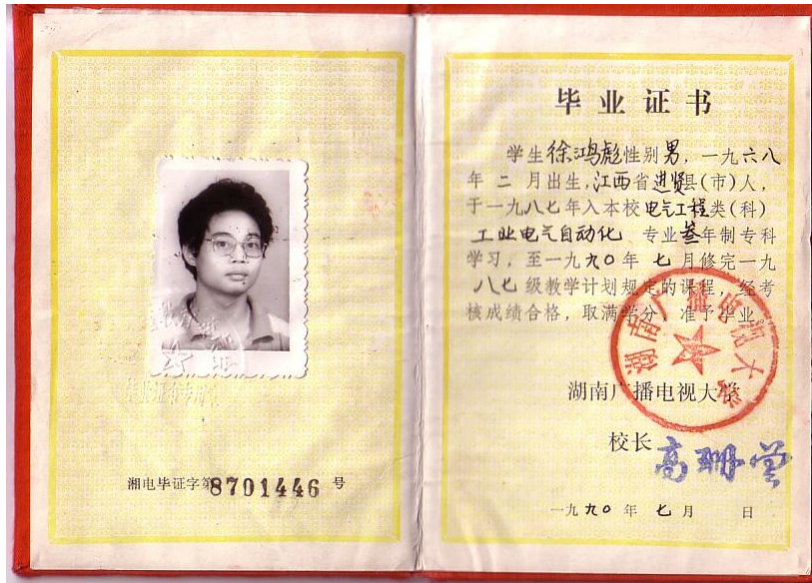 湘电毕证字第8701446 号
毕业证书
学生徐鸿彪性别男，一九六八
年 二 月出生，江西省进贤县(市)人，
于一九八七年入本校电气工程类(科)
工业电气自动化 专业叁年制专科
学习，至一九九〇年 七 月修完一九
八七级教学计划规定的课程，经考
核成绩合格，取满学分，准予毕业。
湖南广播电视大学
湖南广播电视大学
校长
一九九〇年 七 月 日